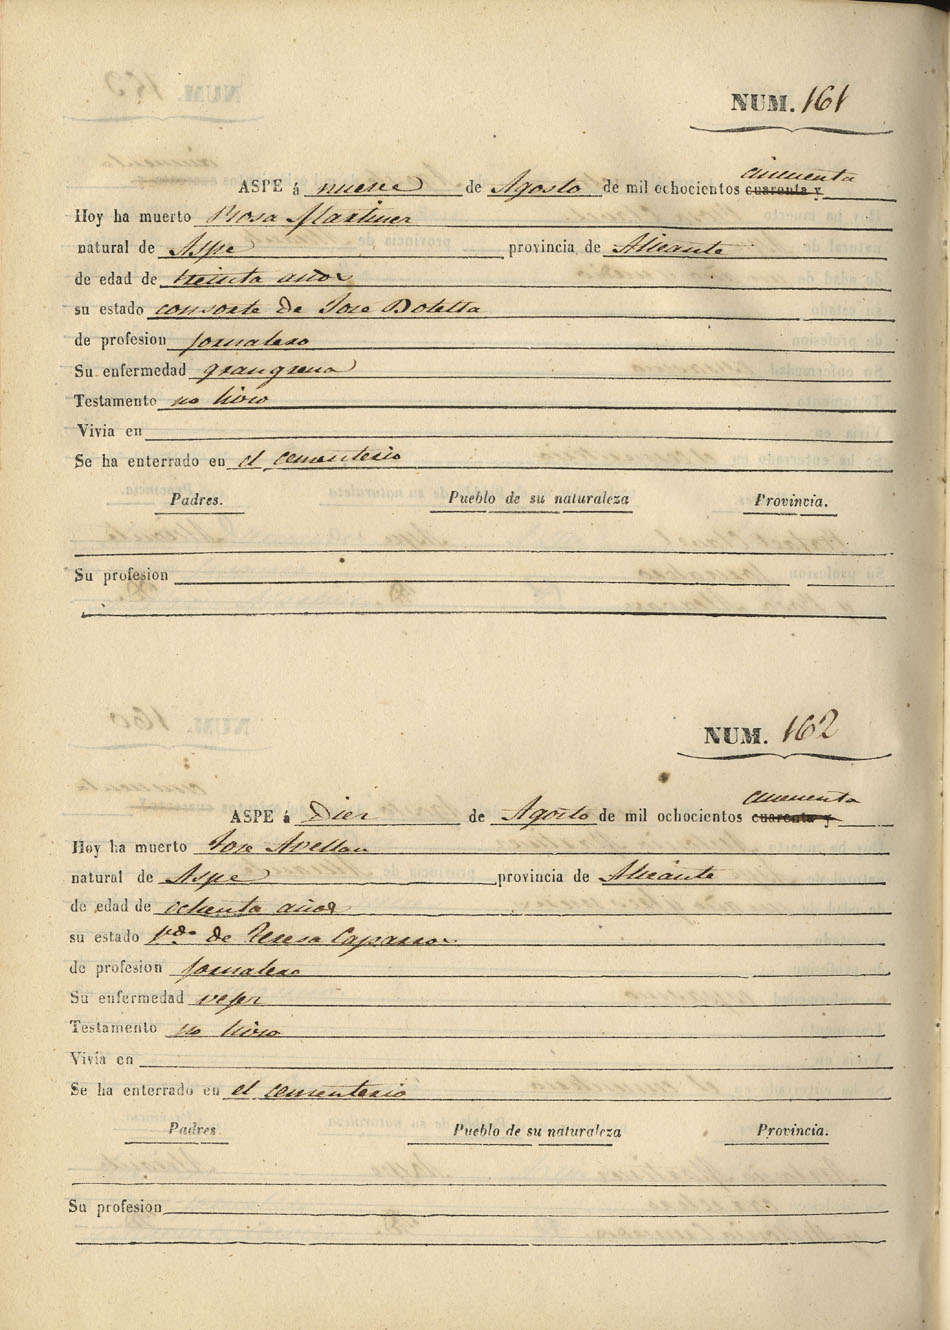 NUM. 161
cincuenta
ASPE á nueve de Agosto de mil ochocientos cuarenta y
Hoy ha muerto Rosa Martinez
natural de Aspe provincia de Alicante
de edad de treinta años
su estado consorte de Jose Botella
de profesion jornalero
Su enfermedad grangrena
Testamento no hizo
Vivia en
Se ha enterrado en el cementerio
Padres. Pueblo de su naturaleza Provincia.
Su profesion
NUM. 162
cincuenta
ASPE á Diez de Agosto de mil ochocientos cuarenta y
Hoy ha muerto Jose Avellan
natural de Aspe provincia de Alicante
de edad de ochenta años
su estado vdo de Teresa Caparros
de profesion jornalero
Su enfermedad vejez
Testamento no hizo
Vivía en
Se ha enterrado en el cementerio
Padres Pueblo de su naturaleza Provincia.
Su profesion